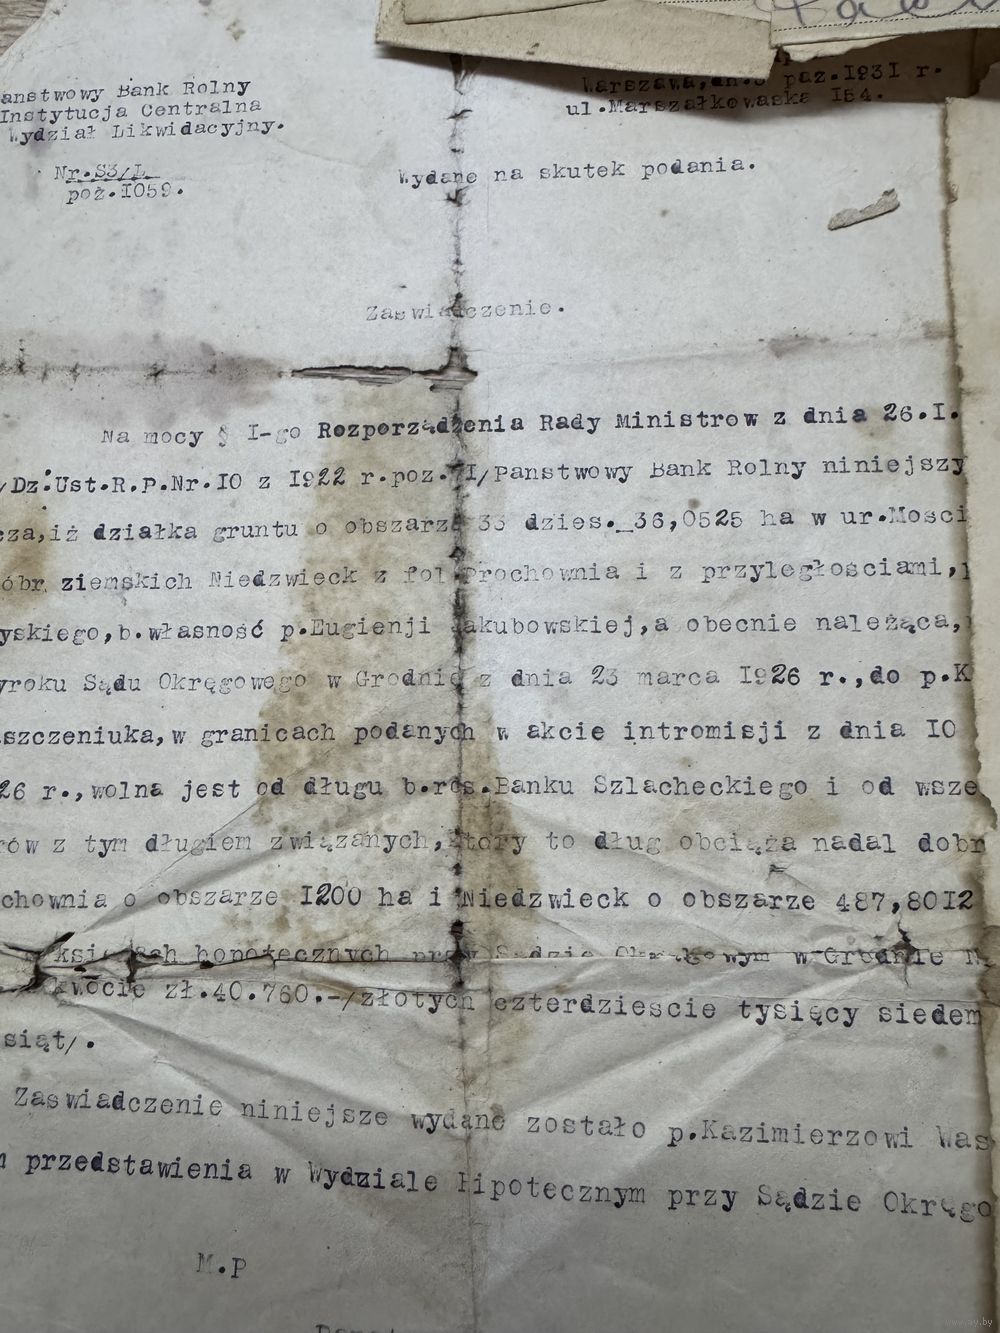 anstwowy Bank Rolny
Instytucja Centralna
Wydział Likwidacyjny.
Warszawa, dn. paz.1931 r.
ul.Marszałkowaska 154.
Nr.S3/L
poz.1059.
Wydane na skutek podania.
Zaswiadczenie.
Na mocy § I-go Rozporządzenia Rady Ministrow z dnia 26.I.
/Dz.Ust.R.P.Nr.10 z 1922 r.poz.71/Panstwowy Bank Rolny niniejszy
cza,iż działka gruntu o obszarze 33 dzies._36,0525 ha w ur.Mosci
óbr ziemskich Niedzwieck z fol.Prochownia i z przyległosciami,
yskiego,b.własność p.Eugienji Jakubowskiej,a obecnie należąca,
yroku Sądu Okręgowego w Grodnie z dnia 23 marca 1926 r.,do p.K
szczeniuka,w granicach podanych w akcie intromisji z dnia 10
26 r.,wolna jest od długu b.ros.Banku Szlacheckiego i od wsze
rów z tym długiem związanych,ktory to dług obciąża nadal dobr
chownia o obszarze 1200 ha i Niedzwieck o obszarze 487,8012
księgach hopotecznych przy Sądzie Okręgowym w Grodnie
kwocie zł.40.760.-/złotych czterdziescie tysięcy siedem
siąt/.
Zaswiadczenie niniejsze wydane zostało p.Kazimierzowi Was
przedstawienia w Wydziale Hipotecznym przy Sądzie Okręgo
M.P
www.ay.by